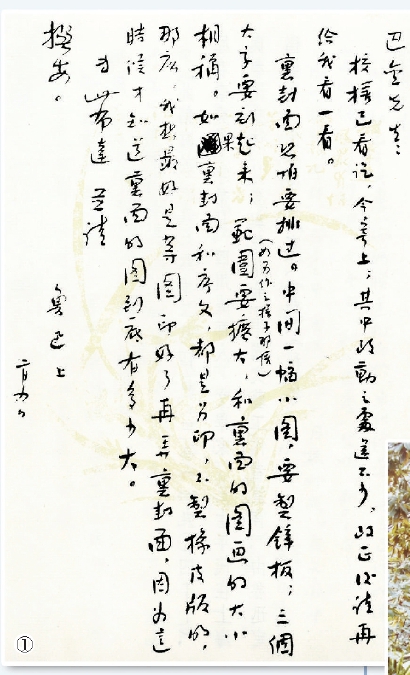 巴金先生:
校樣已看訖,今寄上;其中改動之處還不少,改正後請再
給我看一看。
裏封面恐怕要排過。中間一幅小圖,要製鋅板;三個
大字要刻起來;範圍要擴大,和裏面的圖画的大小
相稱。如果裏封面和序文,都是另印,不製橡皮版的,
那麽,我想最好是等圖印好了再弄裏封面,因為這
時候才知道裏面的圖到底有多少大。
專此布達 並請
撰安。
魯迅上
二月四日
①